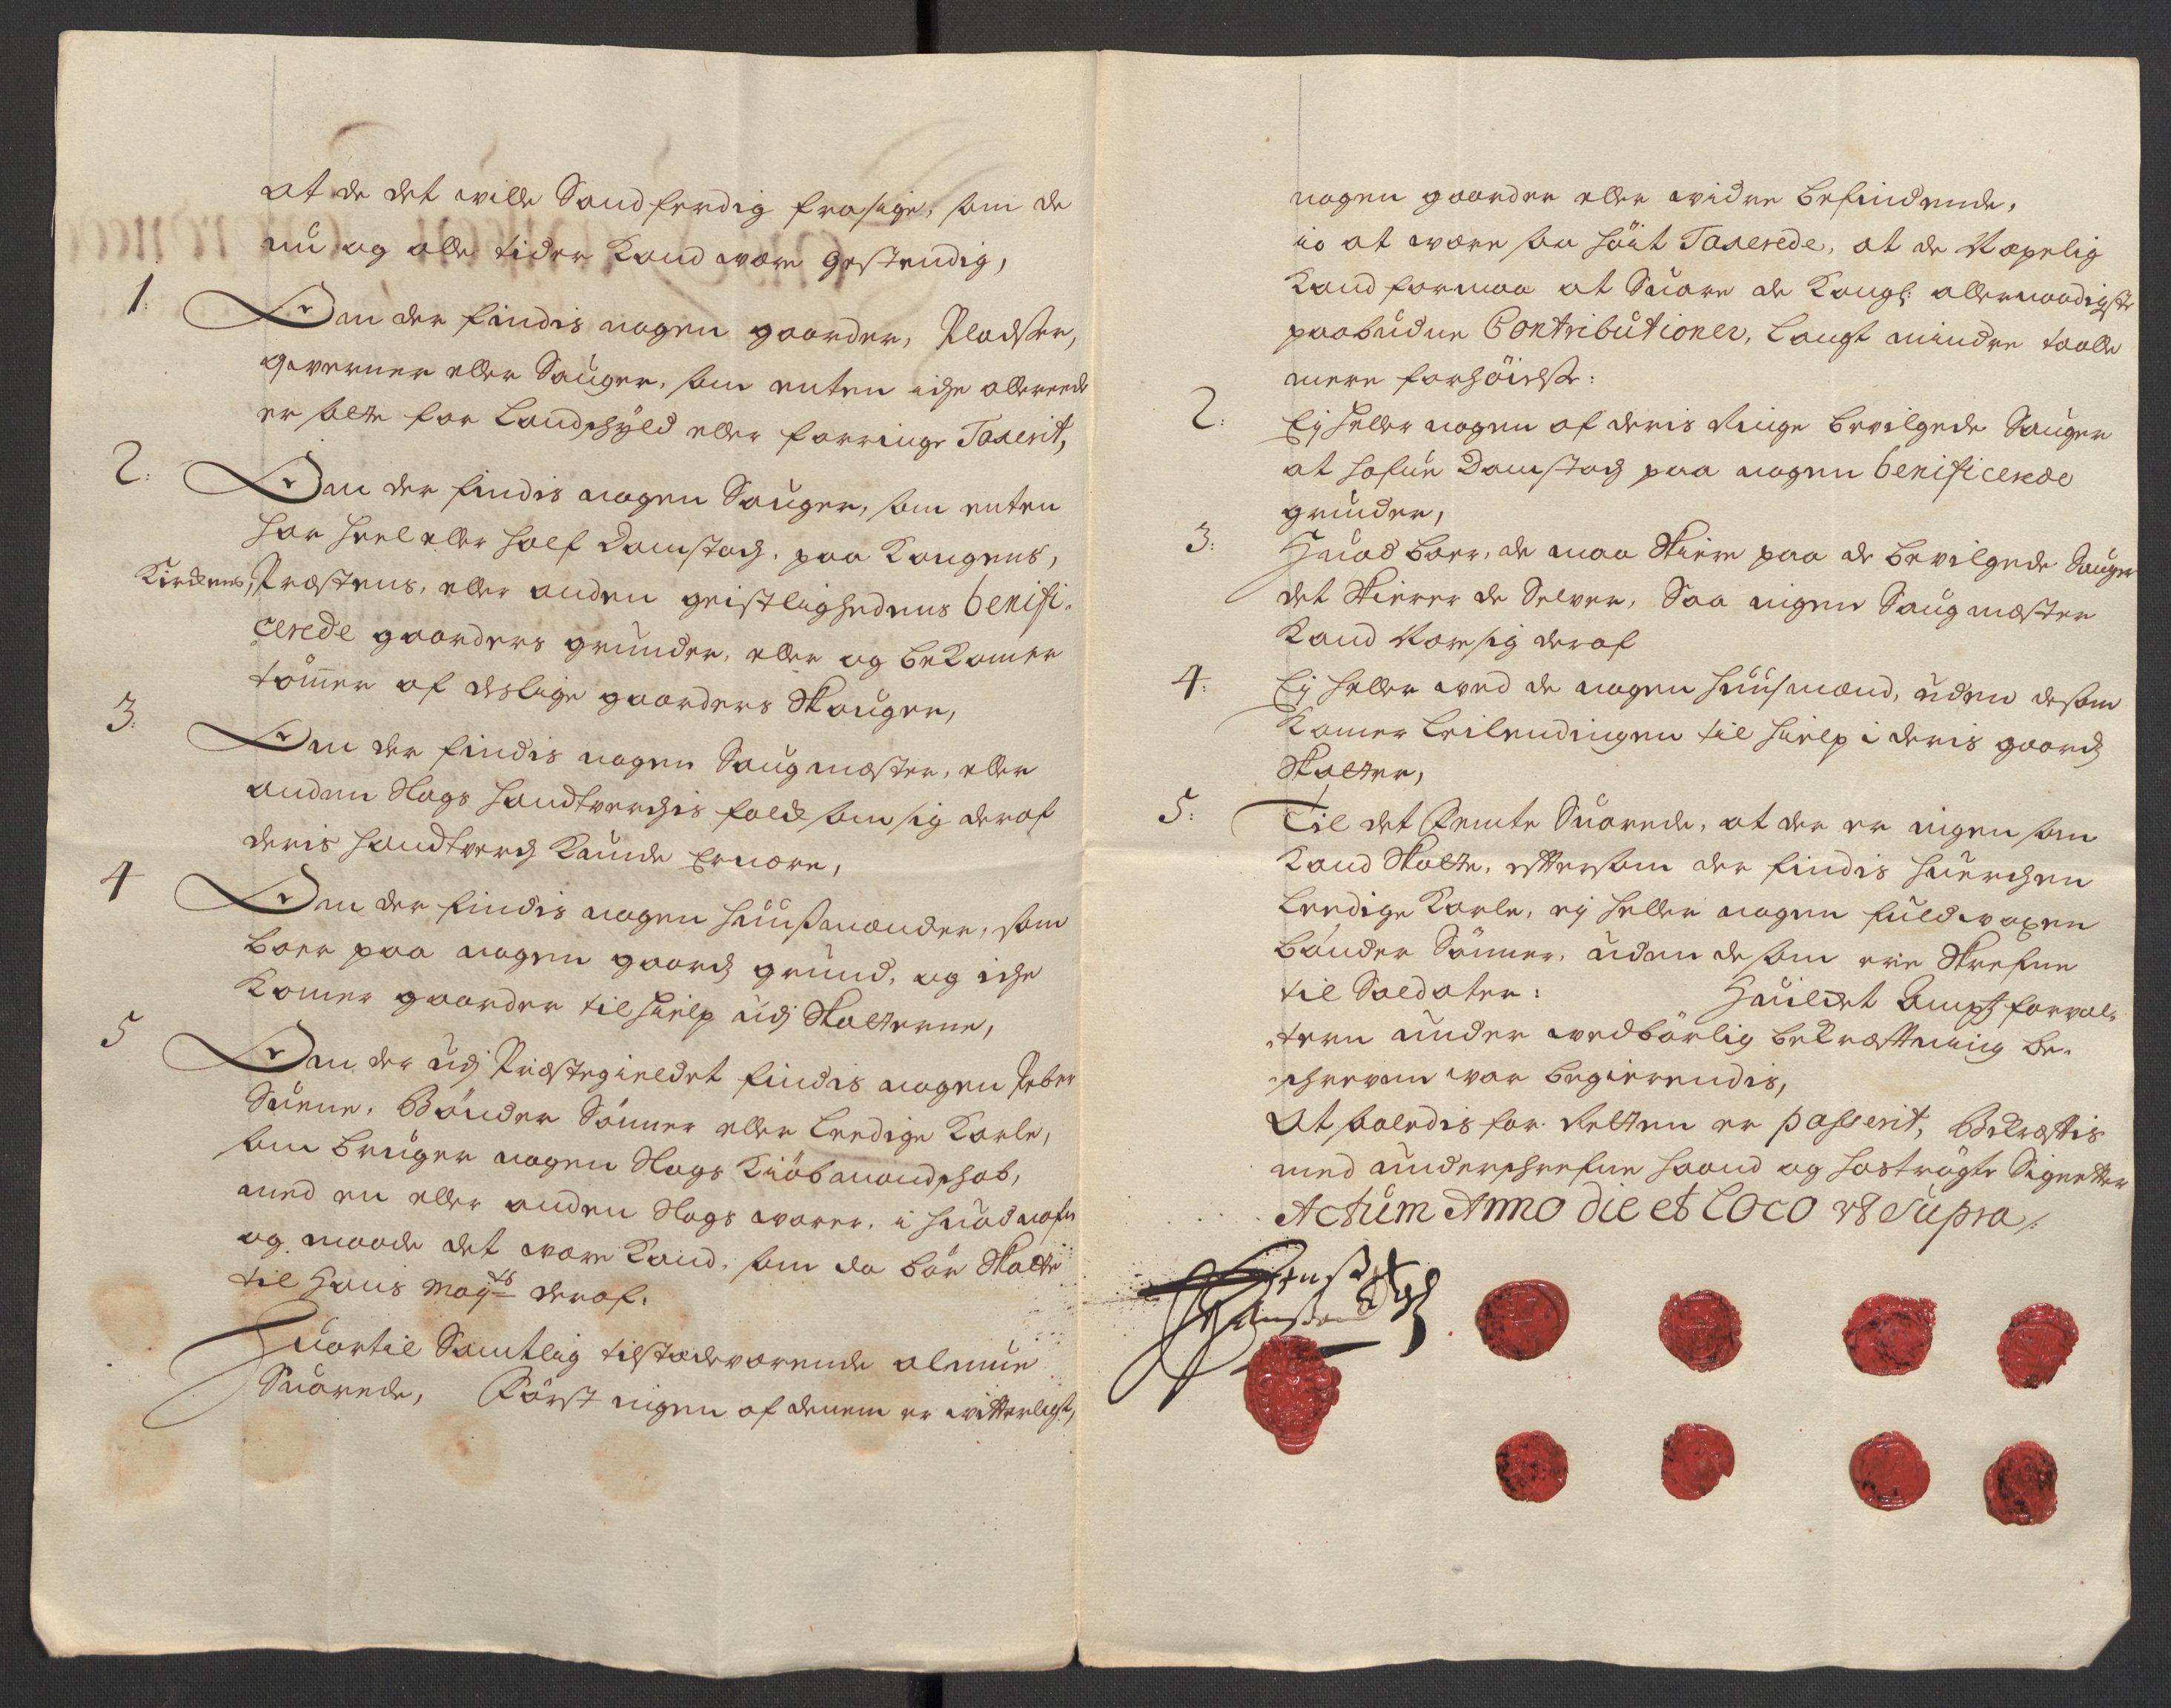 at de det wille Sandferdig frasige, som de
nu og alle tider Kand være gestendig,
1: Om der findis nogen gaarder, Pladser,
qverner eller Sauger, som enten iche allereede
er satte for Landschyld eller forringe Taxerit,
2: Om der findis nogen Sauger, som enten
har heel eller half Damstoch, paa Kongens,
Kirckens, Præstens, eller anden geistlighedens benifi-
cerede gaarders grunder, eller og bekomer
tømer af deslige gaarders Skouger,
3: Om der findis nogen Saugmæster, eller
anden Slags handtverchis folck som sig deraf
deris handtverch Kunde Ernære,
4 Om der findis nogen huusmænder, som
boer paa nogen gaards grund, og iche
Komer gaarder til hielp udj Skatterne,
5 Om der udj Præstegieldet findis nogen Peber
Suene, Bønder Sønner eller Leedige Karle,
som bruger nogen Slags Kiøbmandschab,
med en eller anden Slags warer, i huad nafn
og maade det være Kand, som da bør Skatte
til Hans Mayts deraf.
Huortil Samtlig tilstædeværende almue
Suarede, Først ingen af dennem er witterligt,
nogen gaarder eller widre befindende,
io at være saa høit Taxerede, at de Næpelig
Kand formaa at Suare de Kongl: allernaadigste
paabudne Contributioner, Langt mindre taalle
mere forhøielse:
2: Ej heller nogen af deris Ringe bevilgede Sauger
at hafue Damstoch paa nogen benificerede
grunder,
3: Huad boer, de maa Skiere paa de bevilgede Sauger
det Skierer de Selver, Saa ingen Saugmæster
Kand Nære sig deraf
4: Ej heller wed de nogen huusmænd, uden de som
Komer Leilendingen til hielp i deris gaards
Skatter,
5: Til det Femte Suarede, at der er ingen som
Kand Skatte, eftersom der findis huerchen
Leedige Karle, ej heller nogen fuldvoxen
bønder Sønner, uden de som ere Skrefne
til Soldater: Huilcket Ampts forval-
tern under wedbørlig bekræfftning be-
schreven war begierendis,
At saaledis for Retten er passerit, Bekræftis
med underschrefne haand og hostrøgte Signetter
Actum Anno die et Loco ut Supra/: